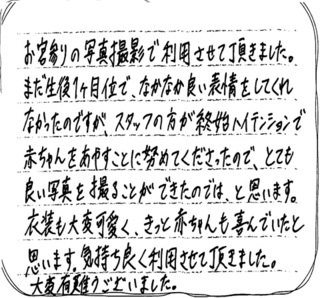 お宮参りの写真撮影で利用させて頂きました。
まだ生後1ヶ月位で、なかなか良い表情をしてくれ
なかったのですが、スタッフの方が終始ハイテンションで
赤ちゃんをあやすことに努めてくださったので、とても
良い写真を撮ることができたのでは、と思います。
衣装も大変可愛く、きっと赤ちゃんも喜んでいたと
思います。気持ち良く利用させて頂きました。
大変有難うございました。